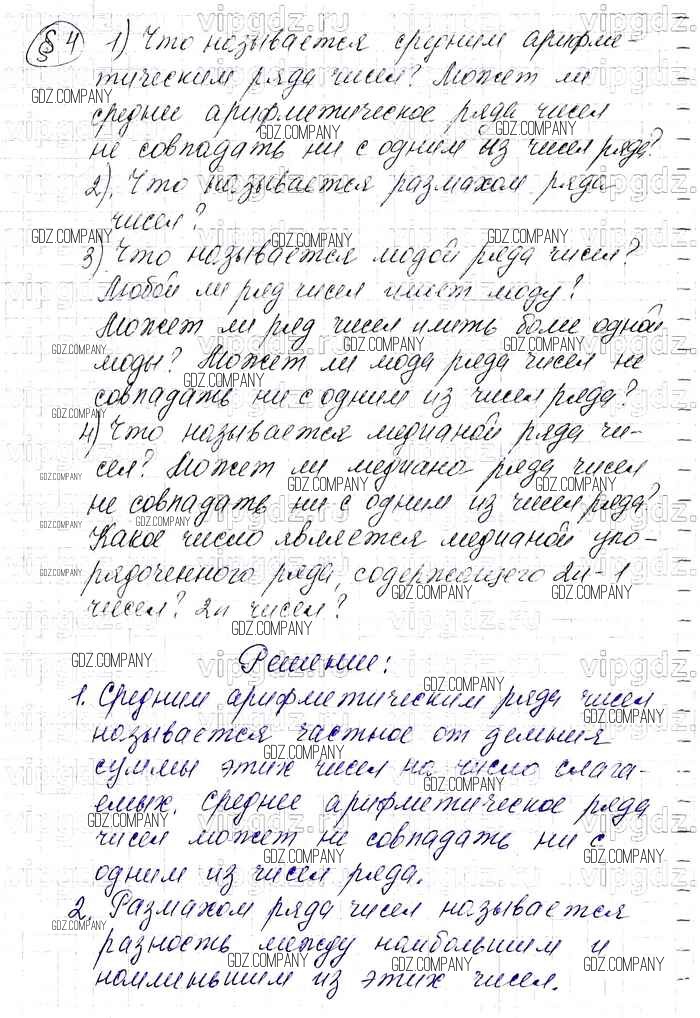 § 4 1) Что называется средним арифме-
тическим ряда чисел? Может ли
среднее арифметическое ряда чисел
не совпадать ни с одним из чисел ряда?
2). Что называется размахом ряда
чисел?
3) Что называется модой ряда чисел?
Любой ли ряд чисел имеет моду?
Может ли ряд чисел иметь более одной
моды? Может ли мода ряда чисел не
совпадать ни с одним из чисел ряда?
4) Что называется медианой ряда чи-
сел? Может ли медиана ряда чисел
не совпадать ни с одним из чисел ряда?
Какое число является медианой упо-
рядоченного ряда, содержащего 2n-1
чисел? 2n чисел?
Решение:
1. Средним арифметическим ряда чисел
называется частное от деления
суммы этих чисел на число слага-
емых. Среднее арифметическое ряда
чисел может не совпадать ни с
одним из чисел ряда.
2. Размахом ряда чисел называется
разность между наибольшим и
наименьшим из этих чисел.